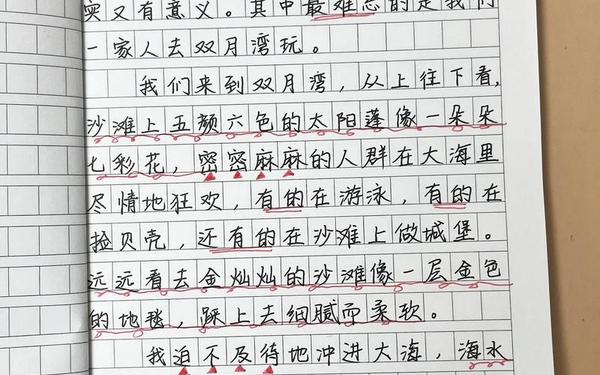 实又有意义。其中最难忘的是我们
一家人去双月湾玩。
我们来到双月湾，从上往下看，
沙滩上五颜六色的太阳蓬像一朵朵
七彩花，密密麻麻的人群在大海里
尽情地狂欢，有的在游泳，有的在
捡贝壳，还有的在沙滩上做城堡。
远远看去金灿灿的沙滩像一层金色
的地毯，踩上去细腻而柔软。
我迫不及待地冲进大海，海水